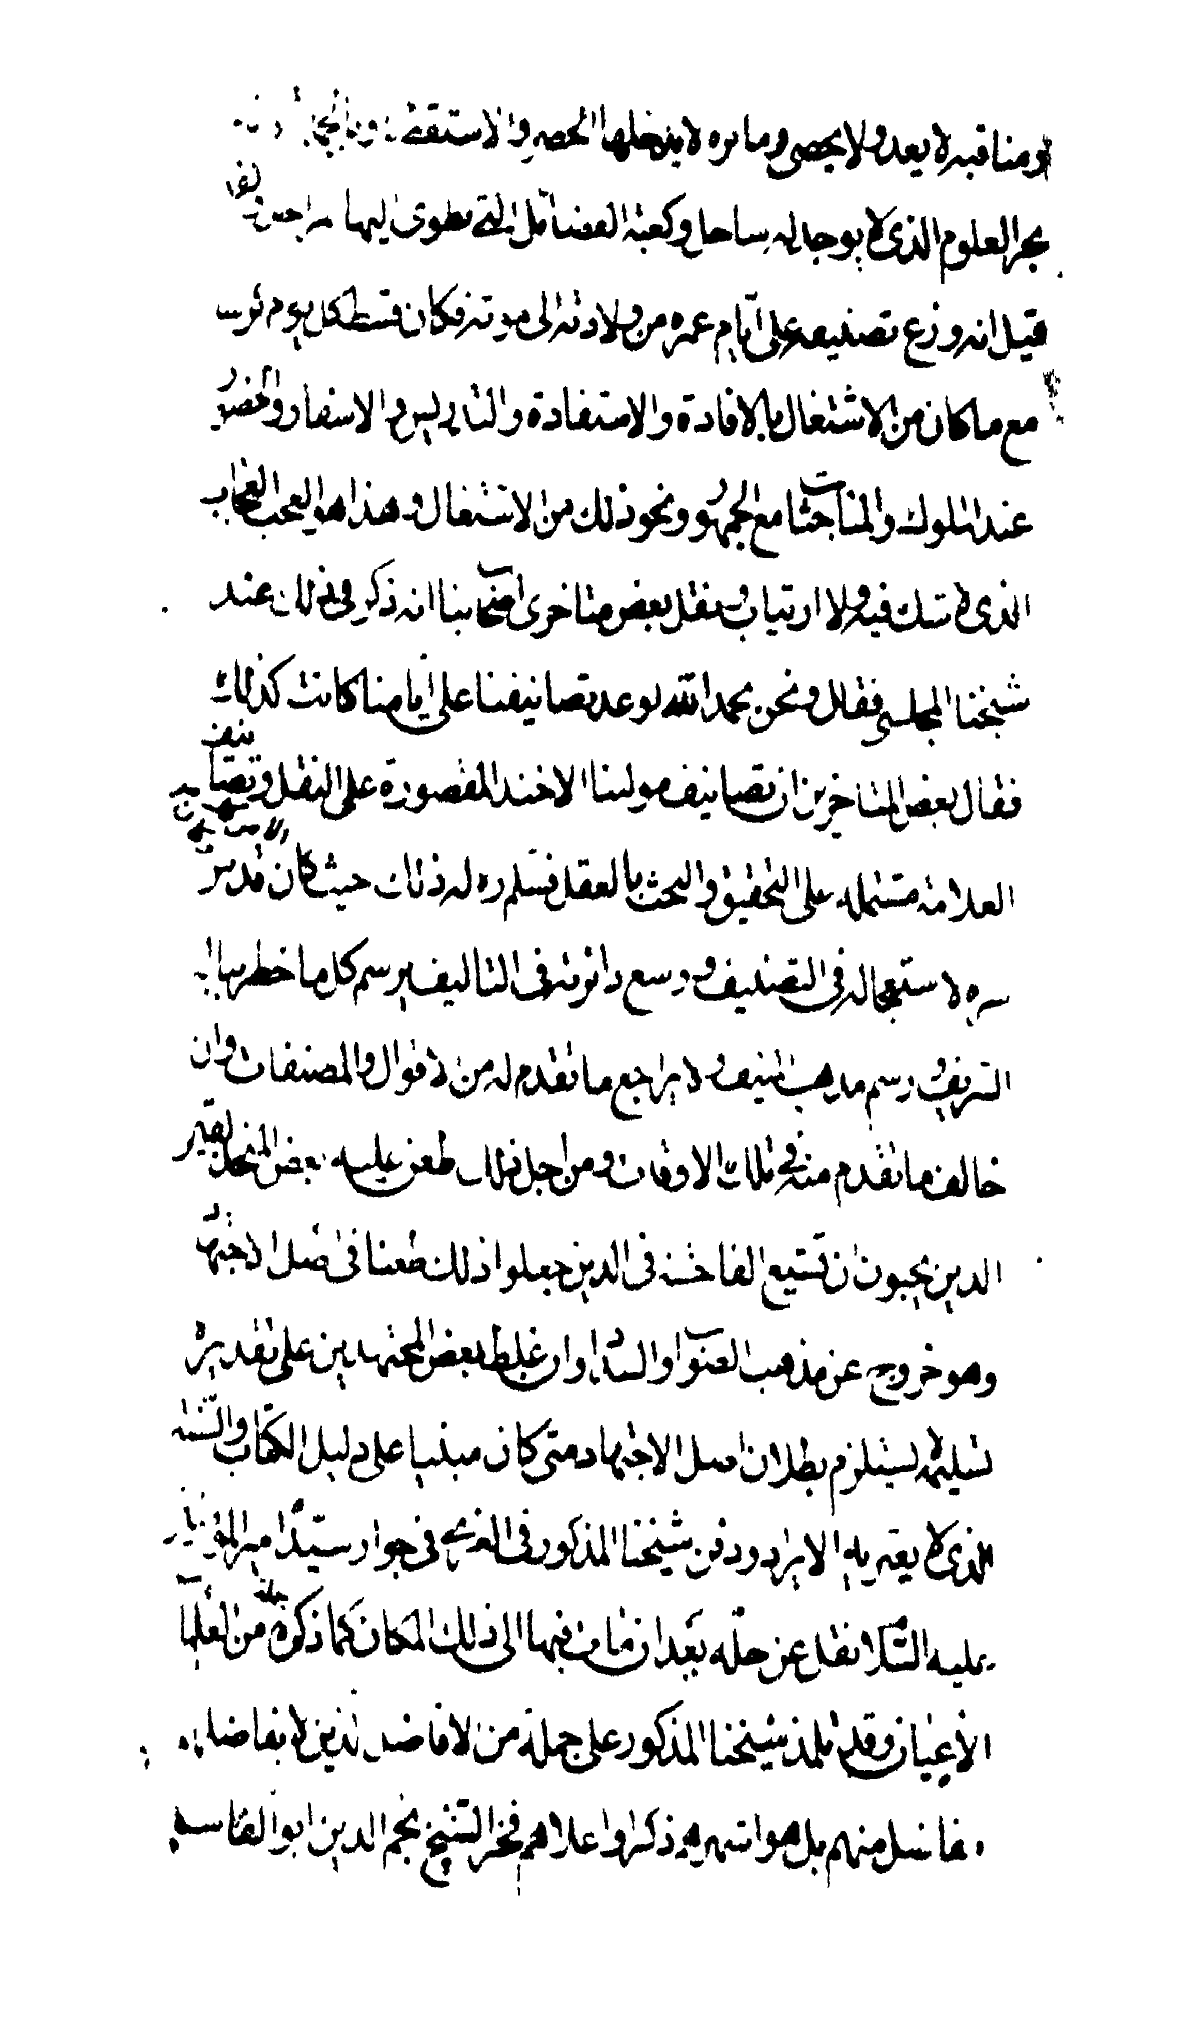 ومناقبه لا يعد ولا يحصى وماثره لا يدخلها الحصر والاستقصى وبالجملة
بحر العلوم الذى لا يوجد له ساحل وكعبة الفضائل التى تطوى اليها المراحل ولقد
قيل انه وزع تصنيفه على ايام عمره من ولادته الى موته فكان قسط كل يوم كراسا
مع ما كان من الاشتغال بالافادة والاستفادة والتدريس والاسفار والحضور
عند الملوك والمباحثات مع الجمهور ونحو ذلك من الاشتغال وهذا هو العجب العجاب
الذى لا شك فيه ولا ارتياب ونقل بعض متاخرى اصحابنا انه ذكر ذلك عند
شيخنا المجلسى فقال ونحن بحمد الله لو عد تصانيفنا على ايامنا كانت كذلك
فقال بعض المتاخرين ان تصانيف مولينا الاخند المقصورة على النقل وتصانيف
العلامة مشتملة على التحقيق والبحث بالعقل فسلم ره له ذلك حيث كان قدس
سره لاستعجاله فى التصنيف ووسع دائرته فى التاليف يرسم كل ما خطر بباله
الشريف ورسم مذهبه المنيف ولا يراجع ما تقدم له من الاقوال والمصنفات وان
خالف ما تقدم منه فى تلك الاوقات ومن اجل ذلك طعن عليه بعض المتحذلقين
الذين يحبون ان تشيع الفاحشة فى الدين جعلوا ذلك طعنا فى اصل الاجتهاد
وهو خروج عن مذهب الصواب والسداد وان غلط بعض المجتهدين على تقديره
تسليمه لا يستلزم بطلان اصل الاجتهاد متى كان مبنيا على دليل الكتاب والسنة
الذى لا يعتريه الايراد ودفن شيخنا المذكور فى الغرى فى جوار سيدنا امير المؤمنين
عليه السلام نقل عن حله بعد ان مات فيها الى ذلك المكان كما ذكره جملة من العلماء
الاعيان وقد تلمذ شيخنا المذكور على جملة من الافاضل الذين لا يفاضلهم
مفاضل منهم بل هو اشهرهم ذكرا واعلاهم فخرا الشيخ نجم الدين ابو القاسم